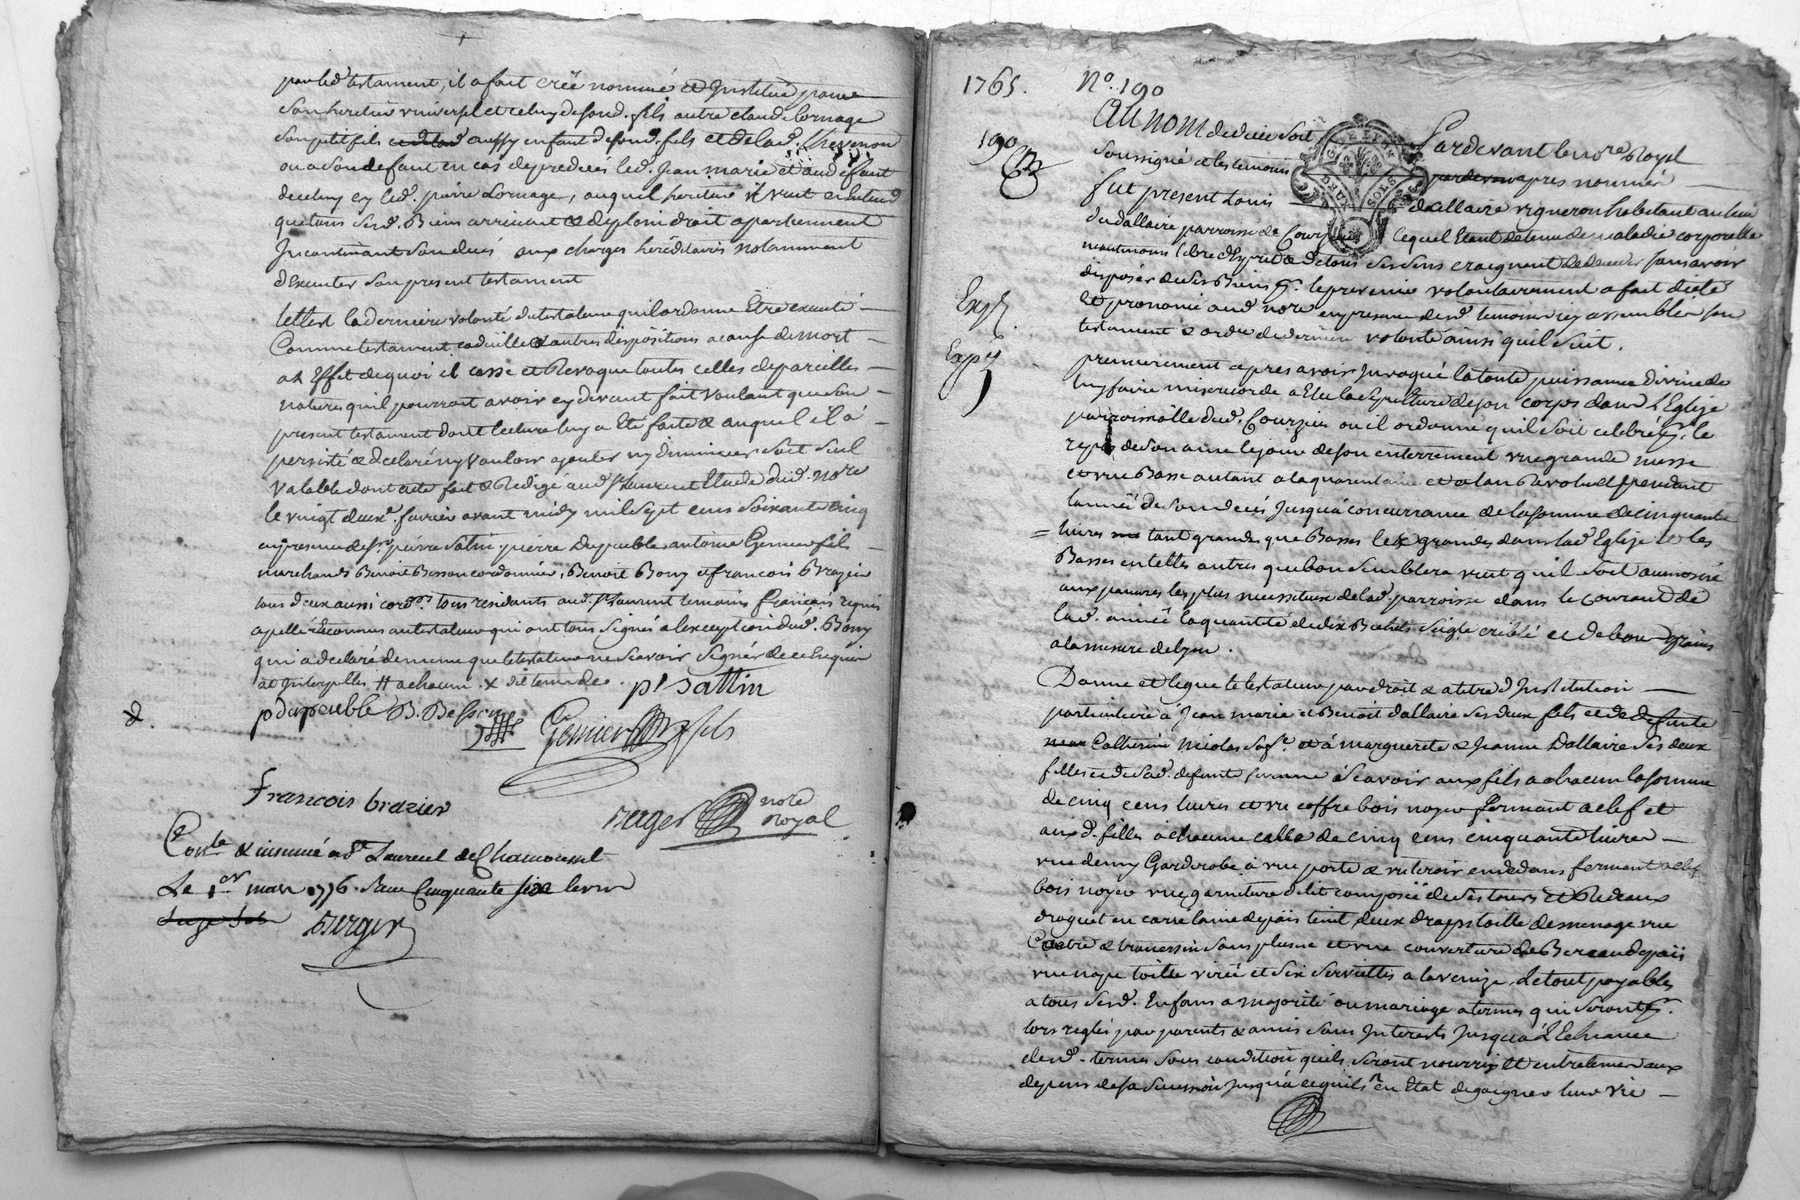 par led. testament, il a fait créé nommé et Institué pour
son heritier universel et celuy desond. fils autre Claude Cornage
son petit fils aussy enfant desond. fils et de lad. Thevenon
ou a son defaut en cas de predeces led. Jean marie et aud defaut
deceluy cy led. pierre Cornage, auquel heritier il veut et entend
que tous sesd. Biens arrivent & de plein droit apartiennent
Incontinant son deces aux charges héréditaires notamment
d'Executer son present testament
telle est la derniere volonté du testateur quil ordonne Etre executé
Comme testament codicille & autres dispositions a cause de mort
a L'Effet de quoi il casse et Revoque toutes celles de pareilles
natures quil pourroit avoir cy devant fait voulant que son
present testament dont lecture luy a Eté faite & auquel il a
persisté & declaré ny vouloir ajouter ny diminuer soit seul
valable dont acte fait & Redigé aud. St Laurent Etude dud. nore
le vingt deuxe. fevrier avant midy mil sept cens soixante cinq
en presence de sr. pierre Satin, pierre Dupeuble, antoine Genier fils
marchands Benoit Besson cordonnier, Benoit Bony et francois Brazier
tous deux aussi cordrs. tous residants aud. St Laurent temoins francais requis
apellés & connus au testateur qui ont tous signés a l'exception dud. Bony
qui a declaré de meme que le testateur ne scavoir signer de ce Enquis
et Interpellés
pr Sattin
p dupeuble B. Besson
Genier fils
Francois brazier
ruger nore Royal
Conle & insinué a St Laurent de Chamousset
Le 1er mars 1776. Reçu Cinquante six livres
berger
1765. No. 190
Au nom de dieu soit Pardevant le nore Royal
190
soussigné et les temoins apres nommés
fut present Louis dallaire vigneron habitant au lieu
du dallaire parroisse de Courzieu lequel Etant detenu de maladie corporelle
neantmoins libre d'Esprit & de tous ses sens craignant de deceder sans avoir
disposer de ses Biens pr. le prevenir volontairement a fait dicté
Expé.
et prononcé aud nore en presence desd. temoins icy assemblés son
testament & ordre de derniere volonté ainsi quil suit.
Expé
premierement apres avoir Invoqué la toute puissance divine de
luy faire misericorde a Elu la sepulture de son corps dans l'Eglise
parroissialle dud. Courzieu ou il ordonne quil soit celebré pr. le
repos de son ame le jour de son enterrement une grande messe
et une Basse autant a la quarantaine et a l'an Revolu et pendant
l'année de son deces Jusqu'a concurrance de la somme de cinquante
livres tant grandes que Basses les grandes dans lad. Eglise et les
Basses en telles autres que bon semblera veut quil soit aumosné
aux pauvres les plus necessiteux de lad. parroisse dans le courant de
lad. année la quantité de dix Bichets seigle criblé et de bon grains
a la mesure de Lyon.
Donne et legue le testateur par droit & a titre d'Institution
particuliere a Jean marie et Benoit dallaire ses deux fils et de defunte
Catherine Nicolas sa fe. et a marguerite & Jeanne Dallaire ses deux
filles et de sad. defunte femme a scavoir aux fils a chacun la somme
de cinq cens livres et un coffre bois noyer fermant a clef et
auxd. filles a chacune celle de cinq cens cinquante livres
une demy Garderobe a une porte & un tiroir en dedans fermant a clef
bois noyer une garniture de lit composée de ses tours et Rideaux
droguet en carré laine de païs teint, deux draps toille de menage une
Coetre & traversin sans plume et une couverture de Bereau de païs
une nape toille virée et six serviettes a la venize. Le tout payables
a tous sesd. Enfans a majorité ou mariage a termes qui seront pr.
lors reglés par parents & amis sans Interests Jusqu'a L'Echeance
desd. termes sous condition quils seront nourris et entretenus aux
depens de sa succession Jusqu'a ce quils en Etat de gaigner leur vie